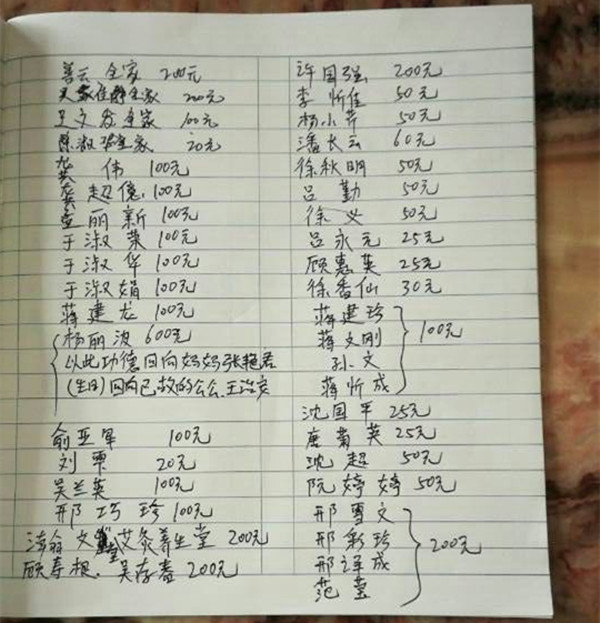 善云全家 200元
全家 200元
全家 100元
全家 20元
伟 100元
超億 100元
丽新 100元
于淑荣 100元
于淑华 100元
于淑娟 100元
蒋建龙 100元
杨丽波 600元
以此功德回向妈妈张艳君
(生日)回向已故的公公王治安
俞亚军 100元
刘军 20元
吴兰英 100元
邢巧珍 100元
艾灸养生堂 200元
顾寿根、吴存春 200元
许国强 200元
李忻佳 50元
杨小萍 50元
潘长云 60元
徐秋明 50元
吕勤 50元
徐义 50元
吕永元 25元
顾惠英 25元
徐香仙 30元
蒋建珍
蒋文刚
100元
孙文
蒋忻成
沈国平 25元
唐菊英 25元
沈超 50元
阮婷婷 50元
邢雪文
邢彩珍
200元
邢译成
范莹